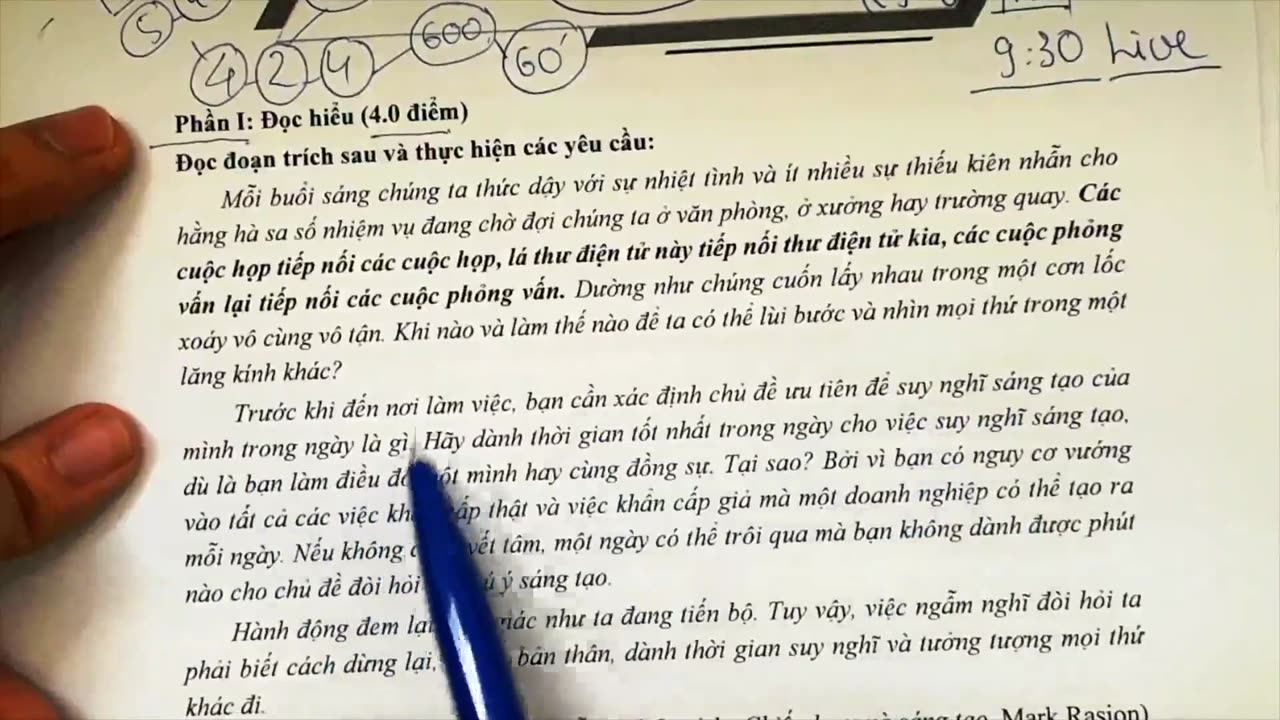 5
4 2 4 600 60'
9:30 Live
Phần I: Đọc hiểu (4.0 điểm)
Đọc đoạn trích sau và thực hiện các yêu cầu:
Mỗi buổi sáng chúng ta thức dậy với sự nhiệt tình và ít nhiều sự thiếu kiên nhẫn cho
hằng hà sa số nhiệm vụ đang chờ đợi chúng ta ở văn phòng, ở xưởng hay trường quay. Các
cuộc họp tiếp nối các cuộc họp, lá thư điện tử này tiếp nối thư điện tử kia, các cuộc phỏng
vấn lại tiếp nối các cuộc phỏng vấn. Dường như chúng cuốn lấy nhau trong một cơn lốc
xoáy vô cùng vô tận. Khi nào và làm thế nào để ta có thể lùi bước và nhìn mọi thứ trong một
lăng kính khác?
Trước khi đến nơi làm việc, bạn cần xác định chủ đề ưu tiên để suy nghĩ sáng tạo của
mình trong ngày là gì. Hãy dành thời gian tốt nhất trong ngày cho việc suy nghĩ sáng tạo,
dù là bạn làm điều mình hay cùng đồng sự. Tại sao? Bởi vì bạn có nguy cơ vướng
vào tất cả các việc thật và việc khẩn cấp giả mà một doanh nghiệp có thể tạo ra
mỗi ngày. Nếu không tâm, một ngày có thể trôi qua mà bạn không dành được phút
nào cho chủ đề đòi hỏi ý sáng tạo.
Hành động đem lại như ta đang tiến bộ. Tuy vậy, việc ngẫm nghĩ đòi hỏi ta
phải biết cách dừng lại, bản thân, dành thời gian suy nghĩ và tưởng tượng mọi thứ
khác đi.
sáng tạo, Mark Rasion)